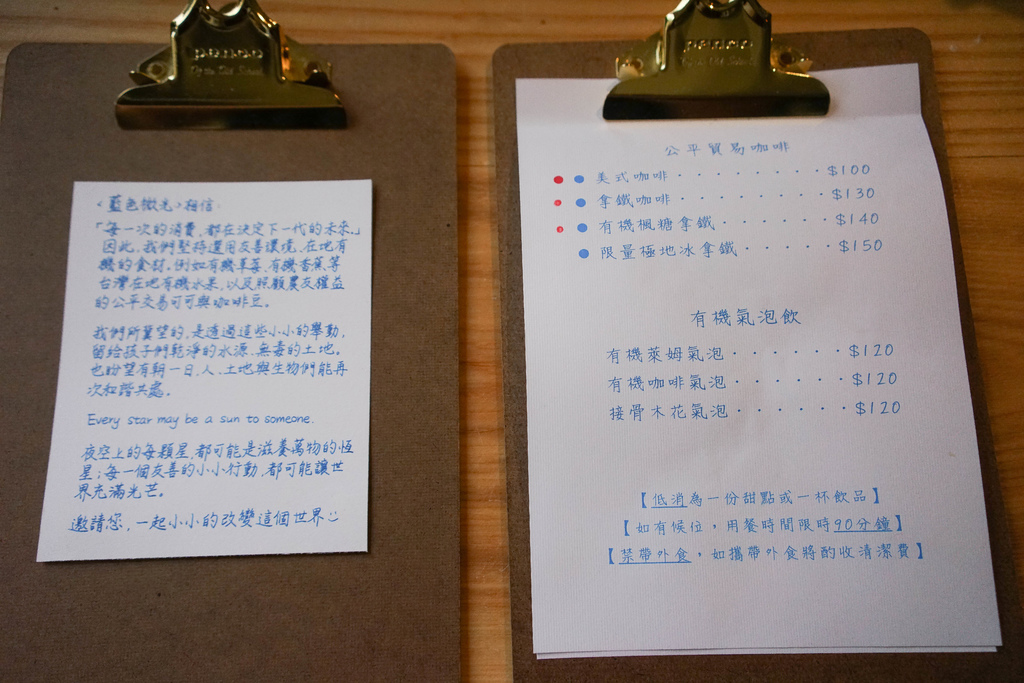 penco
penco
<藍色微光>相信:
「每一次的消費，都在決定下一代的未來。」
因此，我們堅持選用友善環境、在地有
機的食材。例如有機草莓、有機香蕉等
台灣在地有機水果，以及照顧農友權益
的公平交易可可與咖啡豆。
我們所冀望的，是透過這些小小的舉動，
留給孩子們乾淨的水源、無毒的土地。
也盼望有朝一日，人、土地與生物們能再
次和諧共處。
Every star may be a sun to someone.
夜空上的每顆星，都可能是滋養萬物的恆
星；每一個友善的小小行動，都可能讓世
界充滿光芒。
邀請您，一起小小的改變這個世界
公平貿易咖啡
美式咖啡·········$100
拿鐵咖啡·········$130
有機楓糖拿鐵······$140
限量極地冰拿鐵·····$150
有機氣泡飲
有機萊姆氣泡······$120
有機咖啡氣泡······$120
接骨木花氣泡······$120
【低消為一份甜點或一杯飲品】
【如有候位，用餐時間限時90分鐘】
【禁帶外食，如攜帶外食將酌收清潔費】